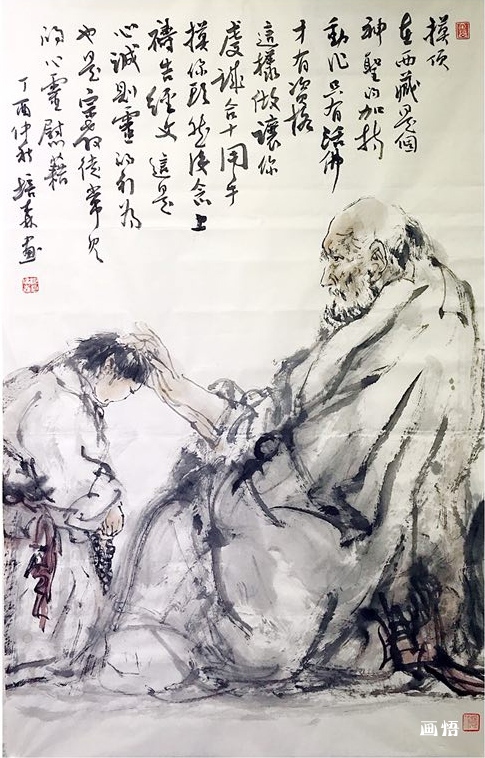 摸顶
在西藏是個
神聖的加持
動作只有活佛
才有资格
這樣做讓你
虔诚合十用手
摸你头然後念上
禱告經文 這是
心誠則靈的行為
也是宗教徒常見
的心靈慰藉
丁酉仲秋 培森画
画悟